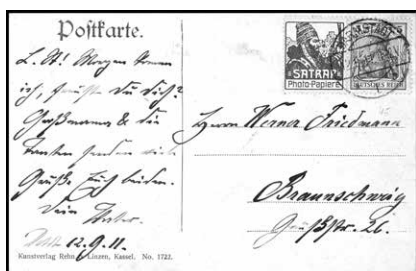 Postkarte.
L. St! Morgen komen
ich, freust Du Dich?
Großmama & die
Tanten senden viele
Grüße Euch beiden.
Dein Vater.
12.9.11.
Kunstverlag Rehn & Linzen, Kassel. No. 1722.
SATRAP
Photo-Papiere
DEUTSCHES REICH
Herrn Werner Friedmann
Braunschweig